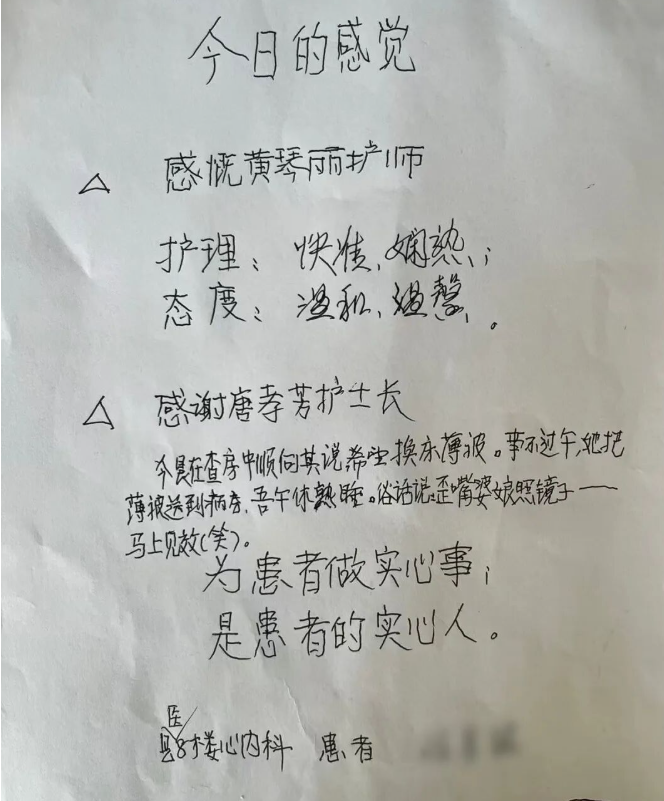 今日的感觉
△ 感慨黄琴丽护师
护理：快准、娴熟、；
态度：温和、温馨、。
△ 感谢唐孝芳护士长
今晨在查房中顺向其说希望换床薄被。事不过午，她把
薄被送到病房，吾午休熟睡。俗话说：歪嘴婆娘照镜子——
马上见效(笑)。
为患者做实心事；
是患者的实心人。
医
县8楼心内科 患者